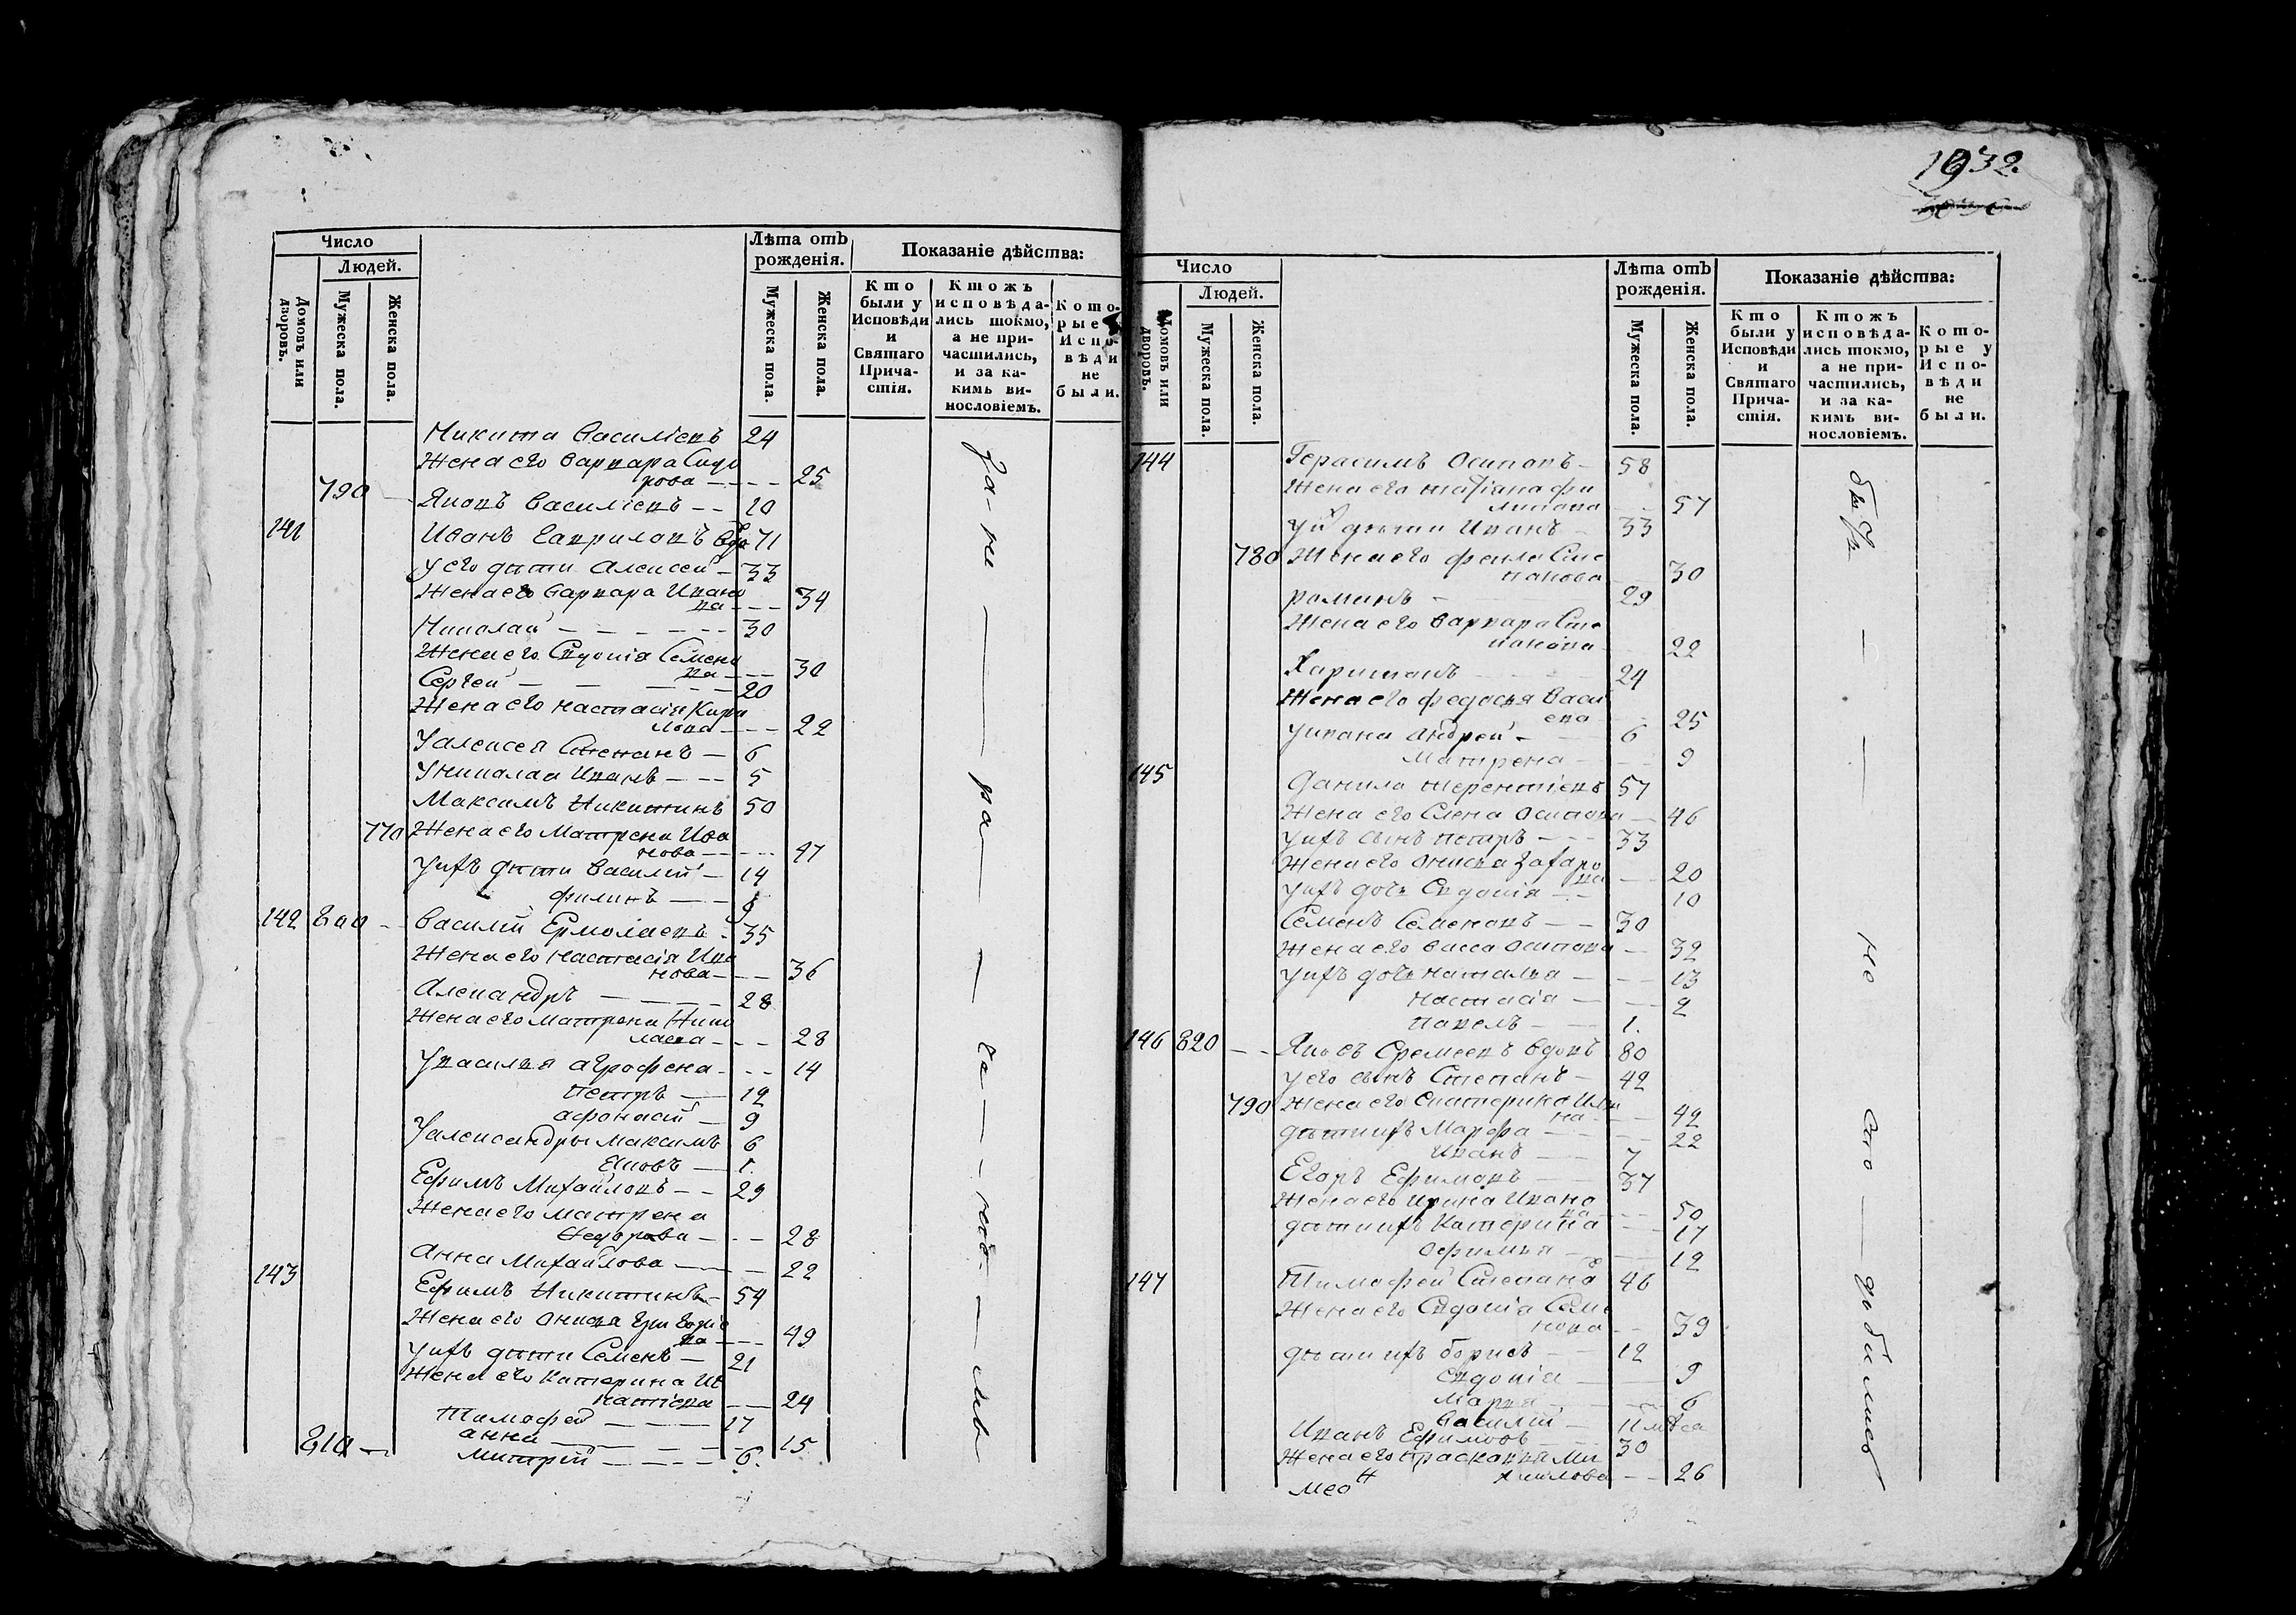 Число
Людей.
Домовъ или дворовъ.
Мужеска пола.
Женска пола.
Лѣта отъ рожденія.
Мужеска пола.
Женска пола.
Показаніе дѣйства:
Кто были у Исповѣди и Святаго Причастія.
Ктожъ исповѣдались токмо, а не причастились, и за какимъ винословіемъ.
Которые у Исповѣди не были.
Никита Василіевъ 24
Жена его Варвара Сидо
рова — 25
790 Яковъ Василіевъ — 20
141 Иванъ Гавриловъ вдо 71
У его дѣти Алексей — 33
Жена его Варвара Ивано
ва — 34
Николай — 30
Жена его Евдокія Семено
ва — 30
Сергей — 20
Жена его Настасія Кири
лова — 22
У Алексея Степанъ — 6
У Николая Иванъ — 5
Максимъ Никитинъ 50
770 Жена его Матрена Ива
нова — 47
У ихъ дѣти Василій — 14
Филипъ —
142 800 Василій Ермолаевъ 35
Жена его Настасія Ива
нова — 36
Александръ — 28
Жена его Матрена Нико
лаева — 28
У Василья Агрофена — 14
Петръ — 12
Афонасій — 9
У Александры Максимъ 6
Яковъ — 1.
Ефимъ Михайловъ — 29
Жена его Матрена
Федорова — 28
Анна Михайлова — 22
143 Ефимъ Никитинъ — 54
Жена его Онисья Григоріе
ва — 49
У ихъ дѣти Семенъ — 21
Жена его Катерина Иг
натіева — 24
Тимофей — 17
Анна — 15
810 Митрій — 6.
1932.
Число
Людей.
Домовъ или дворовъ.
Мужеска пола.
Женска пола.
Лѣта отъ рожденія.
Мужеска пола.
Женска пола.
Показаніе дѣйства:
Кто были у Исповѣди и Святаго Причастія.
Ктожъ исповѣдались токмо, а не причастились, и за какимъ винословіемъ.
Которые у Исповѣди не были.
144 Герасимъ Осиповъ — 58
Жена его Татіана Фи
липова 57
У ихъ дѣти Иванъ 33
780 Жена его Фекла Сте
панова 30
Романъ — 29
Жена его Варвара Сте
панова 22
Харитонъ 24
Жена его Федосья Васи
ева 25
У Ивана Андрей — 6
Матрена — 9
145 Данило Терентіевъ 57
Жена его Елена Осипова — 46
У ихъ сынъ Петръ — 33
Жена его Онисья Захаро
ва — 20
У ихъ дочь Евдокія — 10
Семенъ Семеновъ — 30
Жена его Васса Осипова — 32
У ихъ дочь Наталья — 13
Настасія — 2
Павелъ — 1.
146 820 Яковъ Еремеевъ вдовъ 80
У его сынъ Степанъ — 42
790 Жена его Екатерина Иль
на — 42
Дѣти ихъ Марфа — 22
Иванъ — 7
Егоръ Ефимовъ — 37
Жена его Ирина Ивано
ва — 50
Дѣти ихъ Катерина — 17
Офимья — 12
147 Тимофей Степано 46
Жена его Евдокіа Семе
нова — 39
Дѣти ихъ Борисъ — 12
Евдокія — 9
Марья — 6
Василій — 11 мѣса
Иванъ Ефимовъ 30
Жена его Прасковья Ми
хайлова — 26